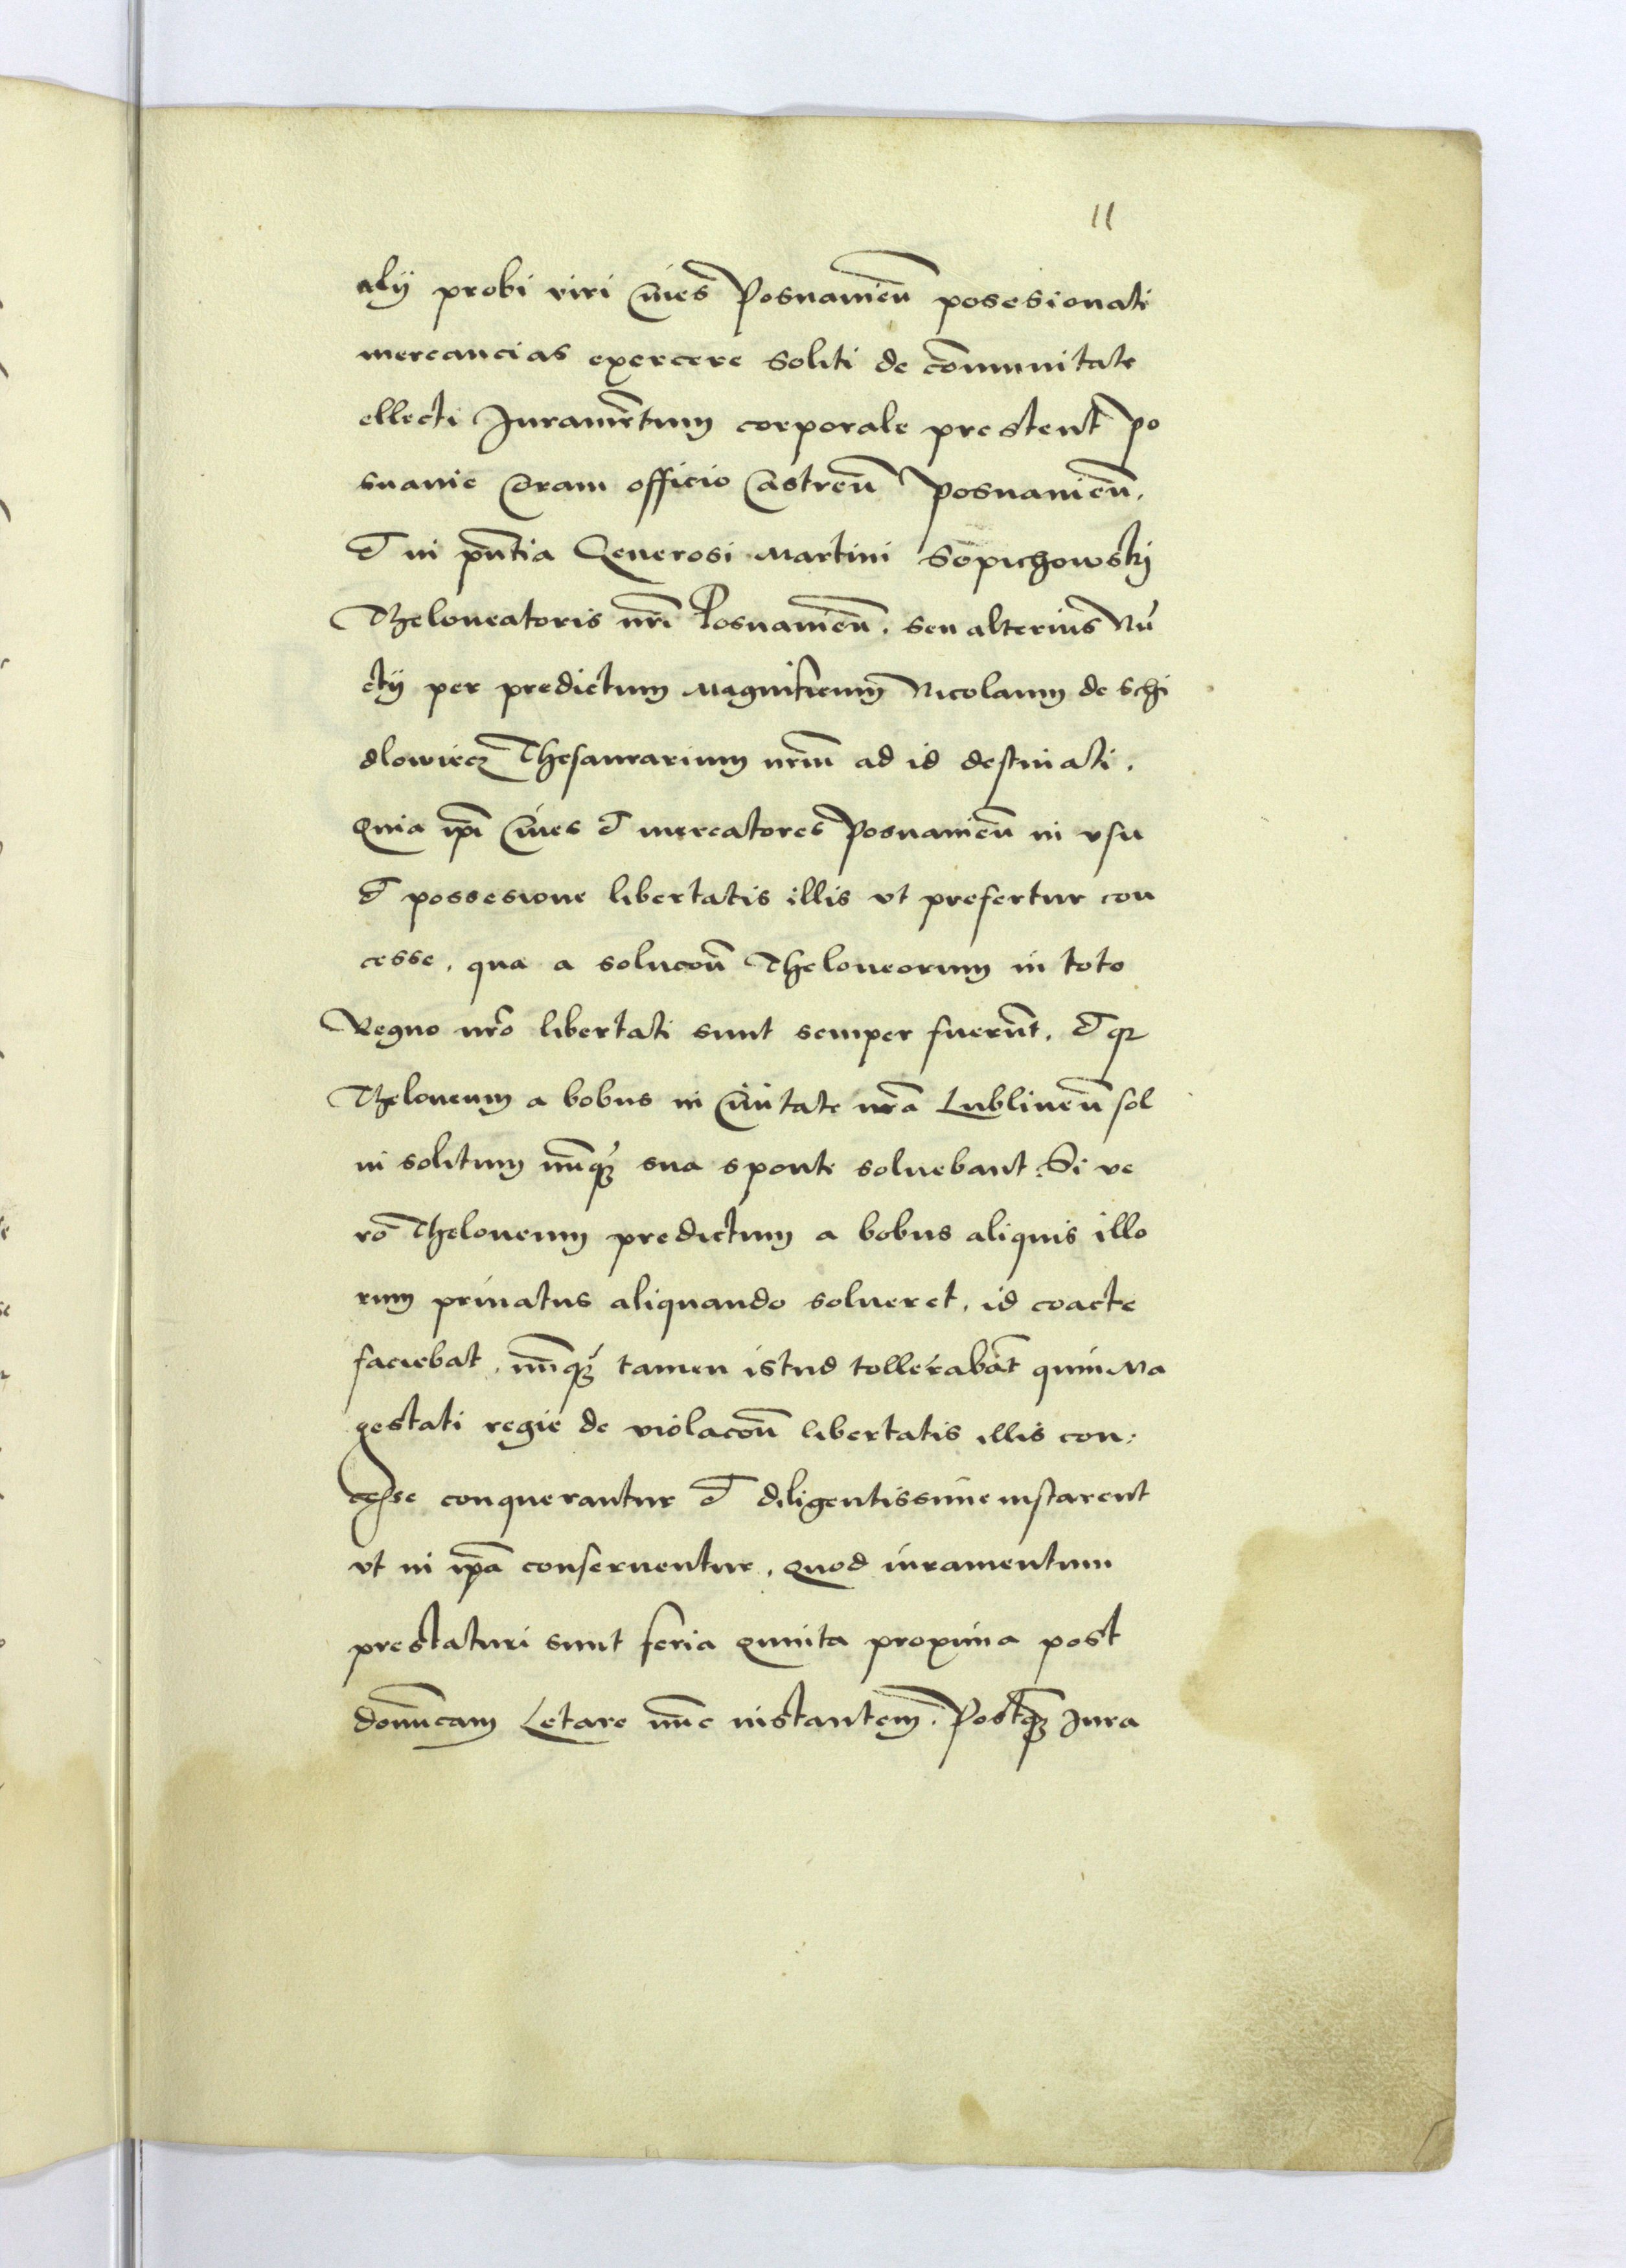 11
alÿ probi viri Ciues Posnanien̄ posesionati
mercancias exercere soliti de com̄unitate
ellecti Juramen̄tum corporale prestent Po
snanie Coram officio Castren̄ Posnanien̄.
Et in pn̄tia Generosi Martini Sopuchowskÿ
Theloneatoris nr̄i Posnanien̄. seu alterius Nū
ctÿ per predictum Magnificum Nicolaum de Schi
dlowiecz Thesaurarium nr̄m ad id destinati.
Quia ip̄i Ciues et mercatores Posnanien̄ in vsu
et possesione libertatis illis vt prefertur con
cesse. qua a solucōn̄ Theloneorum in toto
Regno nr̄o libertati sunt semper fuerūnt. et qz
Theloneum a bobus in Ciuitate nr̄a Lublinen̄ sol
ui solitum nūnqz sua sponte soluebant. Si ve
ro Theloneum predictum a bobus aliquis illo
rum priuatus aliquando solueret. id coacte
faciebat. nūnqz tamen istud tollerabāt quin Ma
gestati regie de violacōn̄ libertatis illis con:
cesse conquerantur et diligentissime instarent
vt in ip̄a conseruentur. Quod iuramentum
prestaturi sunt feria Quinta proxima post
domīcam Letare nūc instantem. Postqz Jura